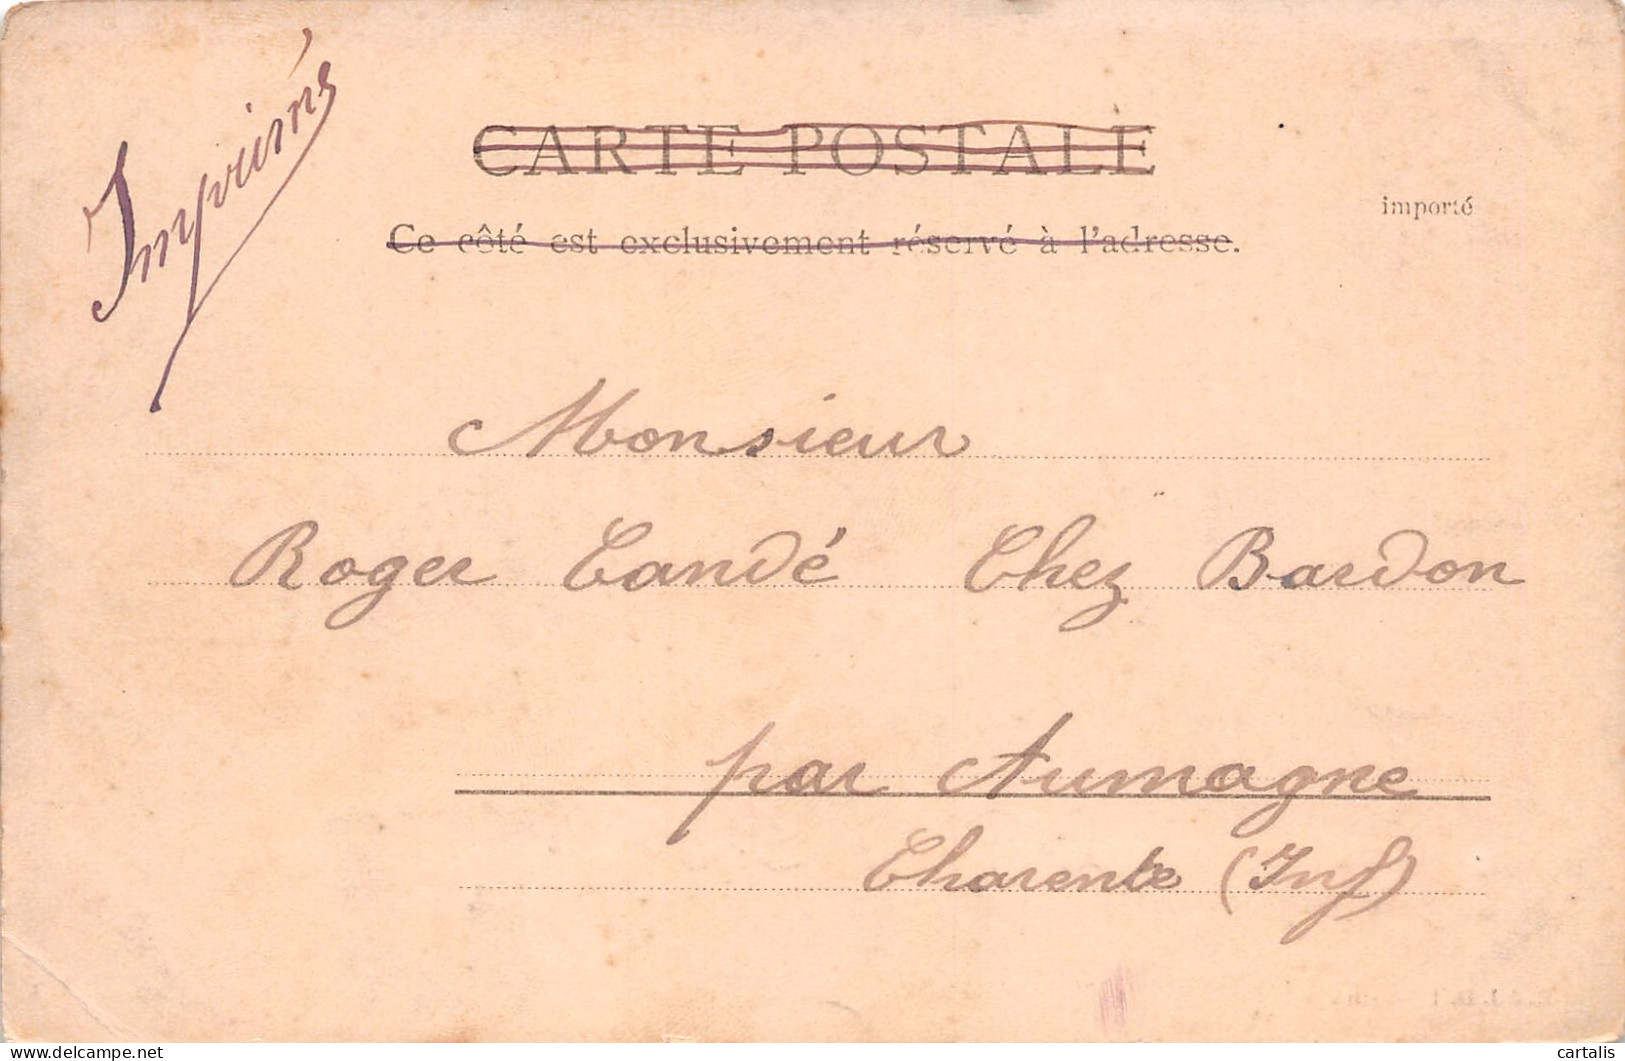 Imprimés
CARTE POSTALE
importé
Ce côté est exclusivement réservé à l'adresse.
Monsieur
Roger Candé Chez Bardon
par Aumagne
Charente (Inf)
delcampe.net
cartalis